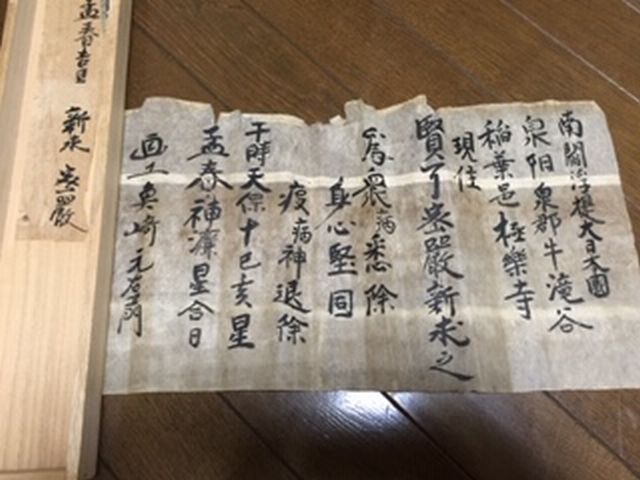 南閻浮提大日本國
泉陽泉郡牛滝谷
稲葉邑極樂寺
現住
賢了密嚴新求之
為衆病悉除
身心堅固
疫病神退除
于時天保十己亥星
孟春 星合日
画工奥崎元右衛門
孟春吉日
新求 密嚴